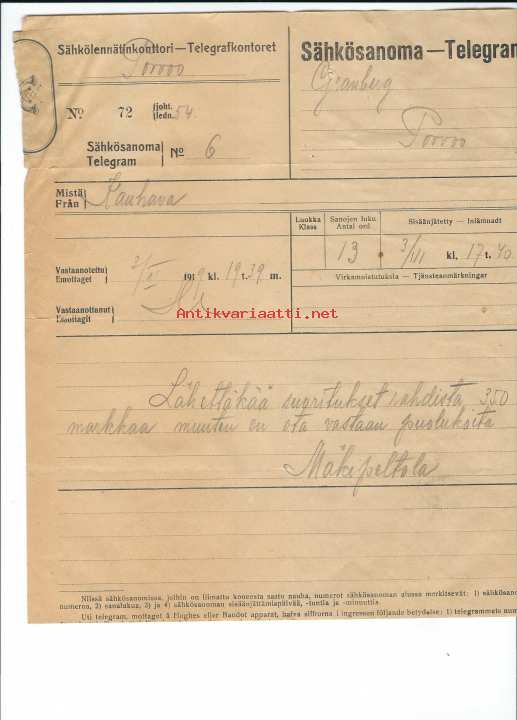 Sähkölennätinkonttori—Telegrafkontoret
Porvoo
Nº 72 {joht. ledn. 54
Sähkösanoma
Telegram Nº 6
Sähkösanoma—Telegram
Granberg
Porvoo
Mistä
Från Kauhava
Luokka
Klass
Sanojen luku
Antal ord
13
Sisäänjätetty — Inlämnadt
3/VI kl. 17 t. 40
Virkamuistutuksia — Tjänsteanmärkningar
Vastaanotettu
Emottaget 3/VI 1919 kl. 19 t. 39 m.
Vastaanottanut
Emottagit
Antikvariaatti.net
Lähettäkää suoritukset rahdista 350
markkaa muuten en ota vastaan puolukoita
Mäkipeltola
Niissä sähkösanomissa, joihin on liimattu koneesta saatu nauha, numerot sähkösanoman alussa merkitsevät: 1) sähkösano
numeroa, 2) sanalukua, 3) ja 4) sähkösanoman sisäänjättämispäivää, -tuntia ja -minuuttia.
Uti telegram, mottaget å Hughes eller Baudot apparat, hafva siffrorna i ingressen följande betydelse: 1) telegrammets num